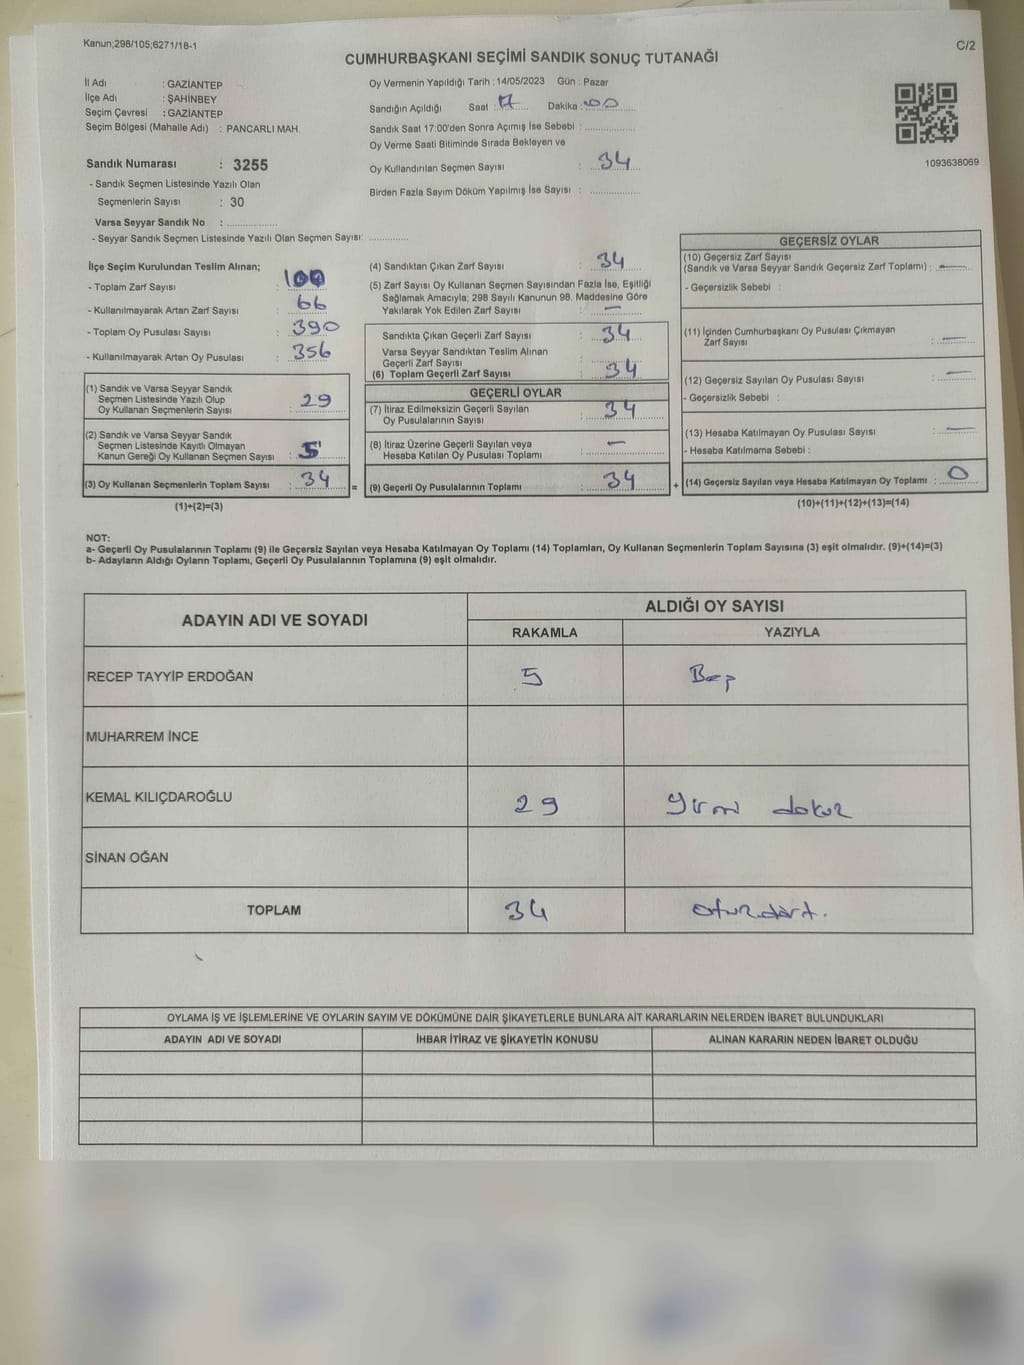 Kanun;298/105;6271/18-1
C/2
CUMHURBAŞKANI SEÇİMİ SANDIK SONUÇ TUTANAĞI
İl Adı : GAZİANTEP
İlçe Adı : ŞAHİNBEY
Seçim Çevresi : GAZİANTEP
Seçim Bölgesi (Mahalle Adı) : PANCARLI MAH.
Sandık Numarası : 3255
- Sandık Seçmen Listesinde Yazılı Olan
Seçmenlerin Sayısı : 30
Varsa Seyyar Sandık No : ..................
- Seyyar Sandık Seçmen Listesinde Yazılı Olan Seçmen Sayısı: ..............
Oy Vermenin Yapıldığı Tarih : 14/05/2023 Gün : Pazar
Sandığın Açıldığı Saat : 17 Dakika : 00
Sandık Saat 17:00'den Sonra Açımış İse Sebebi : ..................
Oy Verme Saati Bitiminde Sırada Bekleyen ve
Oy Kullandırılan Seçmen Sayısı : 34
Birden Fazla Sayım Döküm Yapılmış İse Sayısı : ..................
1093638069
İlçe Seçim Kurulundan Teslim Alınan;
- Toplam Zarf Sayısı : 100
- Kullanılmayarak Artan Zarf Sayısı : 66
- Toplam Oy Pusulası Sayısı : 390
- Kullanılmayarak Artan Oy Pusulası : 356
(1) Sandık ve Varsa Seyyar Sandık
Seçmen Listesinde Yazılı Olup
Oy Kullanan Seçmenlerin Sayısı : 29
(2) Sandık ve Varsa Seyyar Sandık
Seçmen Listesinde Kayıtlı Olmayan
Kanun Gereği Oy Kullanan Seçmen Sayısı : 5
(3) Oy Kullanan Seçmenlerin Toplam Sayısı : 34 =
(1)+(2)=(3)
(4) Sandıktan Çıkan Zarf Sayısı : 34
(5) Zarf Sayısı Oy Kullanan Seçmen Sayısından Fazla İse, Eşitliği
Sağlamak Amacıyla; 298 Sayılı Kanunun 98. Maddesine Göre
Yakılarak Yok Edilen Zarf Sayısı : —
Sandıkta Çıkan Geçerli Zarf Sayısı : 34
Varsa Seyyar Sandıktan Teslim Alınan
Geçerli Zarf Sayısı
(6) Toplam Geçerli Zarf Sayısı : 34
GEÇERLİ OYLAR
(7) İtiraz Edilmeksizin Geçerli Sayılan
Oy Pusulalarının Sayısı : 34
(8) İtiraz Üzerine Geçerli Sayılan veya
Hesaba Katılan Oy Pusulası Toplamı : —
(9) Geçerli Oy Pusulalarının Toplamı : 34 +
GEÇERSİZ OYLAR
(10) Geçersiz Zarf Sayısı
(Sandık ve Varsa Seyyar Sandık Geçersiz Zarf Toplamı) : —
- Geçersizlik Sebebi :
(11) İçinden Cumhurbaşkanı Oy Pusulası Çıkmayan
Zarf Sayısı : —
(12) Geçersiz Sayılan Oy Pusulası Sayısı : —
- Geçersizlik Sebebi :
(13) Hesaba Katılmayan Oy Pusulası Sayısı : —
- Hesaba Katılmama Sebebi :
(14) Geçersiz Sayılan veya Hesaba Katılmayan Oy Toplamı : 0
(10)+(11)+(12)+(13)=(14)
NOT:
a- Geçerli Oy Pusulalarının Toplamı (9) ile Geçersiz Sayılan veya Hesaba Katılmayan Oy Toplamı (14) Toplamları, Oy Kullanan Seçmenlerin Toplam Sayısına (3) eşit olmalıdır. (9)+(14)=(3)
b- Adayların Aldığı Oyların Toplamı, Geçerli Oy Pusulalarının Toplamına (9) eşit olmalıdır.
ADAYIN ADI VE SOYADI
ALDIĞI OY SAYISI
RAKAMLA YAZIYLA
RECEP TAYYİP ERDOĞAN 5 Beş
MUHARREM İNCE
KEMAL KILIÇDAROĞLU 29 Yirmi dokuz
SİNAN OĞAN
TOPLAM 34 otuzdört.
OYLAMA İŞ VE İŞLEMLERİNE VE OYLARIN SAYIM VE DÖKÜMÜNE DAİR ŞİKAYETLERLE BUNLARA AİT KARARLARIN NELERDEN İBARET BULUNDUKLARI
ADAYIN ADI VE SOYADI İHBAR İTİRAZ VE ŞİKAYETİN KONUSU ALINAN KARARIN NEDEN İBARET OLDUĞU